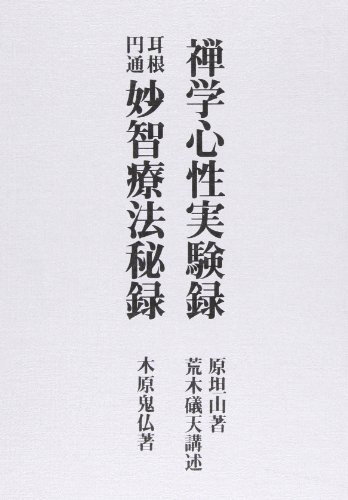 禅学心性実験録
原坦山著
荒木礒天講述
耳根
円通
妙智療法秘録
木原鬼仏著